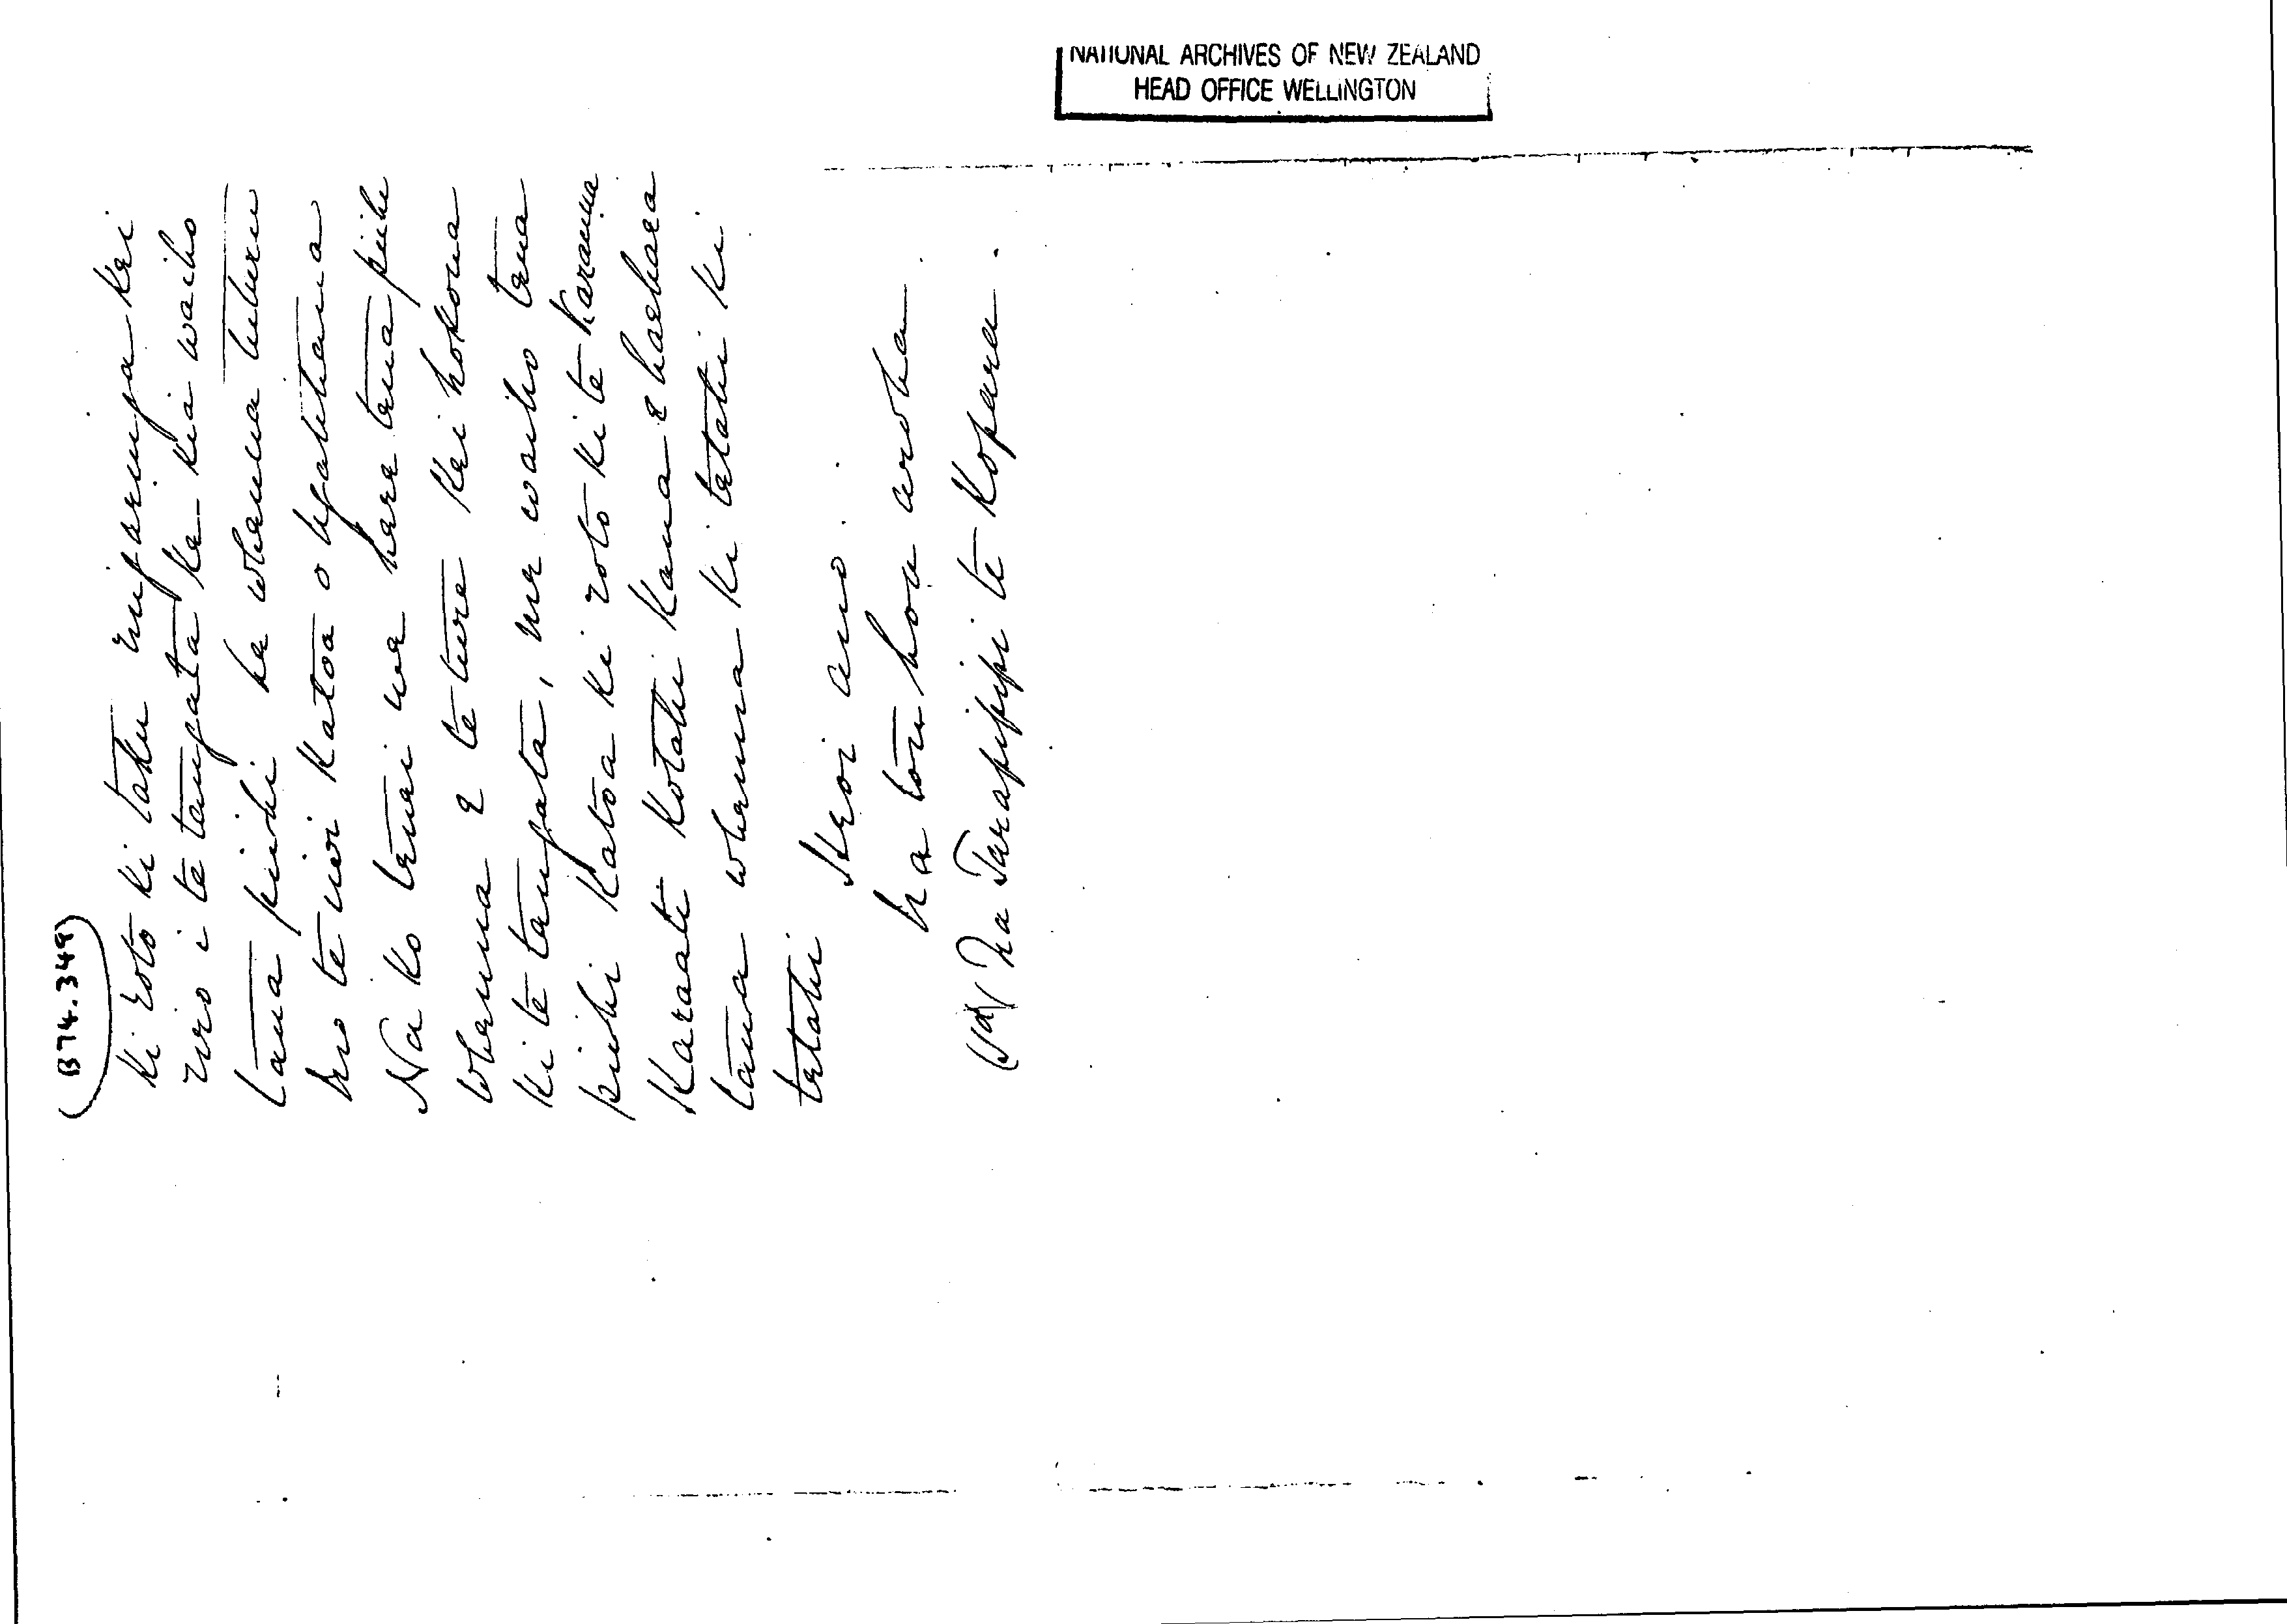 NATIONAL ARCHIVES OF NEW ZEALAND
HEAD OFFICE WELLINGTON
(B74.349)
ki roto ki taku ringaringa kei
riro i te tangata ke kia waiho
taua pihi he whenua tuturu
mo te iwi katoa o Ngatitama
Na ko tenei me here tena pihi
whenua e te ture kei hokona
ki te tangata, me waiho tena
pihi katoa ki roto ki te Karauna
Karaati kotahi kaua e haehaea
taua whenua ki tetahi ki
tetahi
Heoi ano.
Na tou hoa aroha
(Sd) Na Tarapipipi te Kopara.